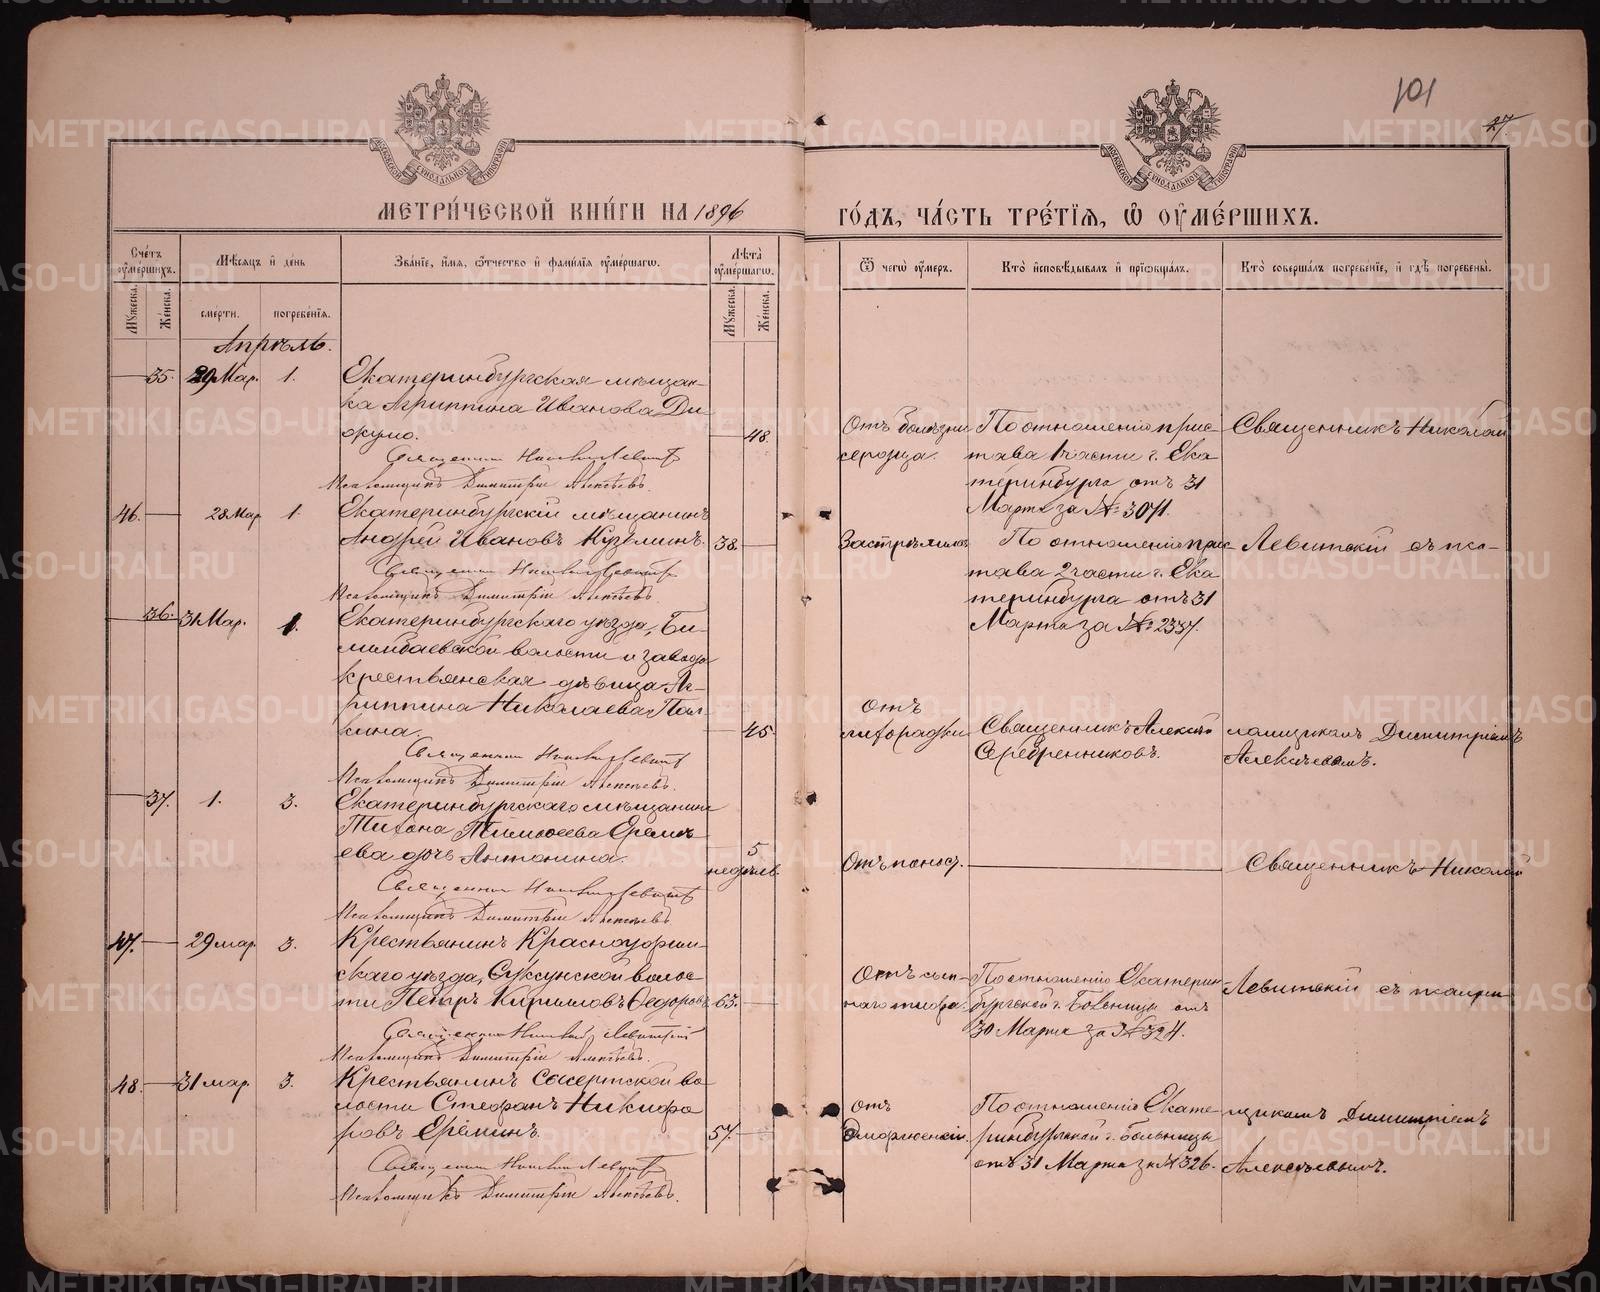 101
27
МОСКОВСКОЙ СУНОДАЛЬНОЙ ТИПОГРАФІИ
МОСКОВСКОЙ СУНОДАЛЬНОЙ ТИПОГРАФІИ
МЕТРИ́ЧЕСКОЙ КНИ́ГИ НА 1896
ГО́ДЪ, ЧА́СТЬ ТРЕ́ТІЯ, Ѡ ОУМЕ́РШИХЪ.
Сче́тъ оуме́ршихъ.
Мѣсяцъ и де́нь
Зва́ніе, и́мя, ѻ́тчество и фами́лія оуме́ршагѡ.
Лѣта̀ оуме́ршагѡ.
Ѿ чегѡ̀ оу́меръ.
Кто̀ исповѣ́дывалъ и прїѡбща́лъ.
Кто̀ соверша́лъ погребе́ніе, и гдѣ̀ погребены̀.
Му́жеска.
Же́нска.
сме́рти.
погребе́нія.
Му́жеска.
Же́нска.
Апрѣль.
35. 29 Мар. 1.
Екатеринбургская мѣщан-
ка Агриппина Иванова Ди-
48.
Священникъ Николай Левитскій
Псаломщикъ Димитрій Алексѣевъ.
Отъ болѣзни
сердца.
По отношенію прис-
тава 1 части г. Ека
теринбурга отъ 31
Марта за № 3071.
Священникъ Николай
46. 28 Мар 1.
Екатеринбургскій мѣщанинъ
Андрей Ивановъ Кузьминъ. 38.
Священникъ Николай Левитскій
Псаломщикъ Димитрій Алексѣевъ.
Застрѣлился
По отношенію прис-
тава 2 части г. Ека
теринбурга отъ 31
Марта за № 2337.
Левитскій съ пса-
36. 31 Мар. 1.
Екатеринбургскаго уѣзда, Би-
лимбаевской волости и завода
крестьянская дѣвица Аг-
риппина Николаева Пал-
кина.
45
Священникъ Николай Левитскій
Псаломщикъ Димитрій Алексѣевъ.
Отъ
лихорадки
Священникъ Алексій
Серебренниковъ.
ломщикомъ Димитріемъ
Алексѣевымъ.
37. 1. 3.
Екатеринбургскаго мѣщанина
Тихона Тимоѳеева Еремѣ
ева дочь Антонина.
5
недѣль.
Священникъ Николай Левитскій
Псаломщикъ Димитрій Алексѣевъ
Отъ поноса.
Священникъ Николай
47. 29 мар. 3.
Крестьянинъ Красноуфим-
скаго уѣзда, Суксунской волос-
ти Петръ Кирилловъ Ѳедоровъ 63.
Священникъ Николай Левитскій
Псаломщикъ Димитрій Алексѣевъ.
Отъ сып-
наго тифа.
По отношенію Екатерин-
бургской г. Больницы отъ
30 Марта за № 324.
Левитскій съ псалом
48. 31 мар. 3.
Крестьянинъ Сысертской во-
лости Стефанъ Никифо
ровъ Ерёминъ. 57.
Священникъ Николай Левитскій
Псаломщикъ Димитрій Алексѣевъ.
Отъ
По отношенію Екате-
ринбургской г. больницы
отъ 31 Марта за № 326.
щикомъ Димитріемъ
Алексѣевымъ.
METRIKI.GASO-URAL.RU